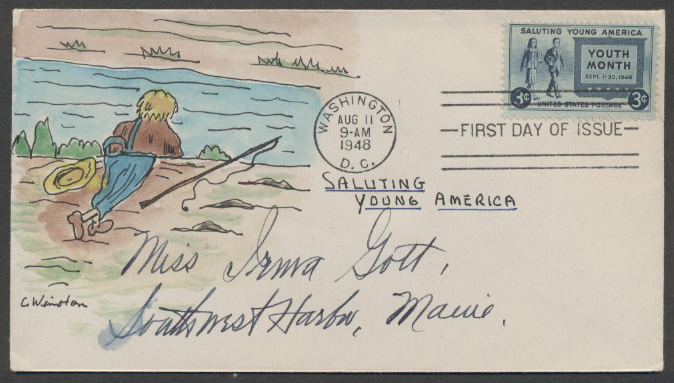 SALUTING YOUNG AMERICA
YOUTH
MONTH
SEPT. 1-30, 1948
3¢ 3¢
UNITED STATES POSTAGE
WASHINGTON
AUG 11
9-AM
1948
D. C.
FIRST DAY OF ISSUE
SALUTING
YOUNG AMERICA
Miss Irma Gott,
Southwest Harbor, Maine.
C Winston